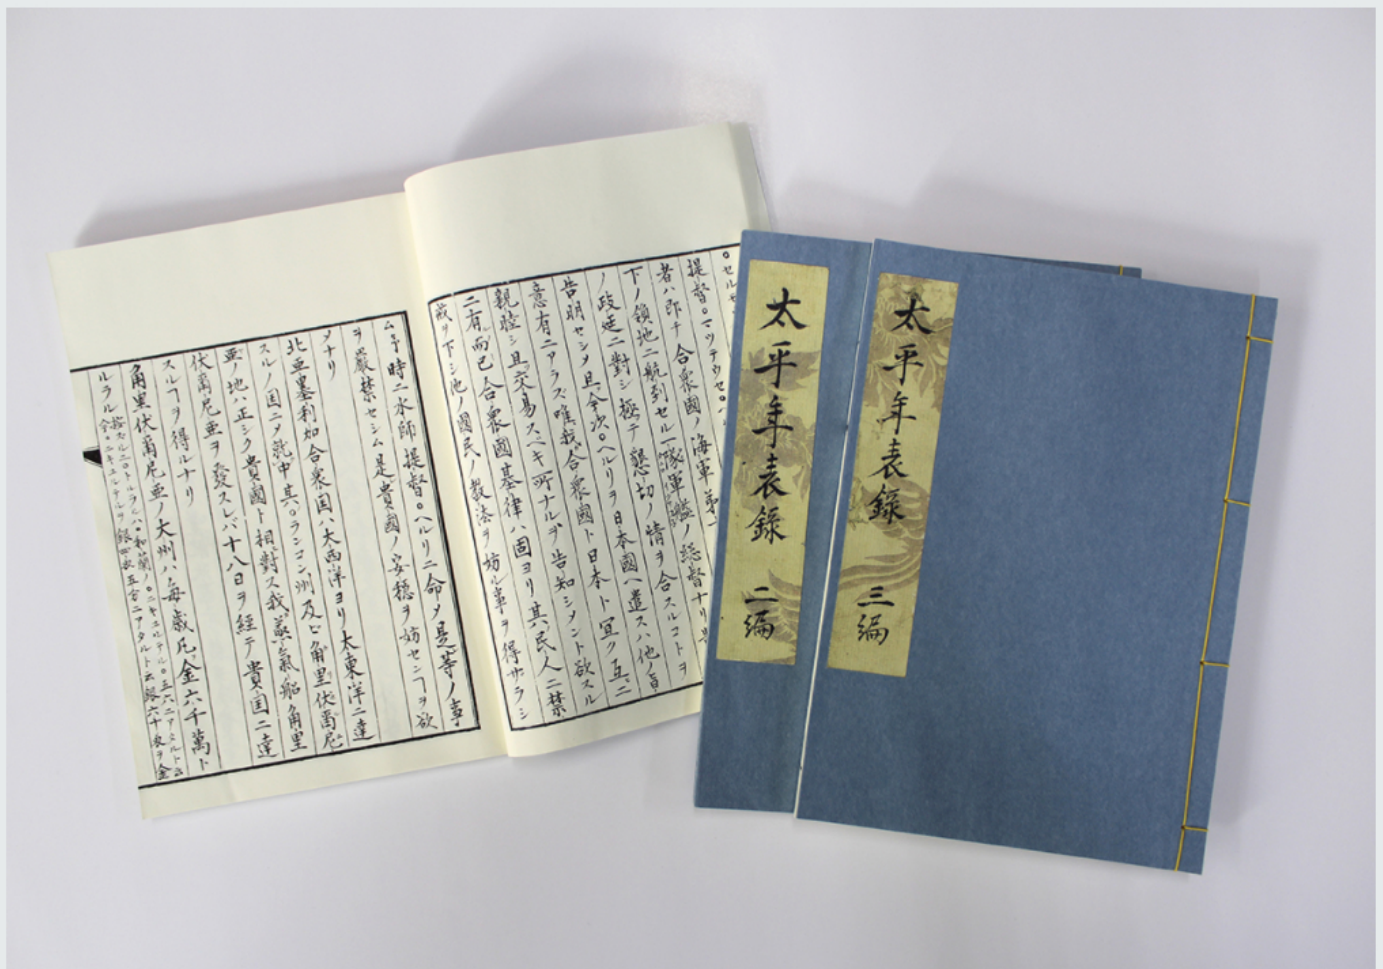 太平年表錄 三編
太平年表錄 二編
。セルサ
提督。マツテウセ。ヘ
者ハ即チ 合衆國ノ海軍 第一
下ノ領地ニ航到セル一隊軍艦ノ総督ナリ
ノ政廷ニ對シ極テ懇切ノ情ヲ合スルコトヲ
告明セシメ且今次。ヘルリヲ日本國ヘ遣スハ他ノ旨
意有ニアラズ唯我合衆國ト日本ト宜ク互ニ
親睦シ且交易スベキ所ナルヲ告知シメント欲スル
ニ有而已合衆國基律ハ固ヨリ其民人ニ禁
戒ヲ下シ他ノ國民ノ教法ヲ妨ル事ヲ得サラシ
ム 時ニ水師提督。ヘルリニ命メ是等ノ事
ヲ嚴禁セシム是貴國ノ安穏ヲ妨センヿヲ欲
メナリ
北亜墨利加合衆国ハ大西洋ヨリ太東洋ニ達
スルノ国ニメ就中其。ヲレゴン州及ビ角里伏爾尼
亜ノ地ハ正シク貴國ト相對ス我蒸氣船角里
伏爾尼亜ヲ發スレバ十八日ヲ経テ貴国ニ達
スルヿヲ得ルナリ
角里伏爾尼亜ノ大州ハ毎歳凡金六千萬ト
ルラル